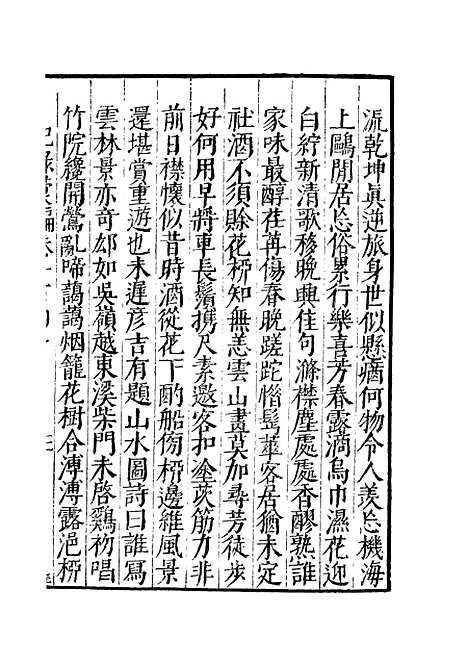 流乾坤眞逆旅身世似縣㾽何物令人羨忘機海
上鷗閒居忘俗累行樂喜芳春露滴烏巾濕花迎
白紵新清歌移晚興佳句滌襟塵處處香醪熟誰
家味最醇荏苒傷春晚蹉跎惜鬂華客居猶未定
社酒不須賒花柳知無恙雲山畫莫加尋芳徒步
好何用早將車長鬚攜尺素邀客扣塗茨筋力非
前日襟懷似昔時酒從花下酌船傍柳邊維風景
還堪賞重遊也未遲彥吉有題山水圖詩曰誰寫
雲林景亦奇却如吳嶺越東溪柴門未啓鷄初唱
竹院纔開鶯亂啼藹藹烟籠花樹合溥溥露浥柳